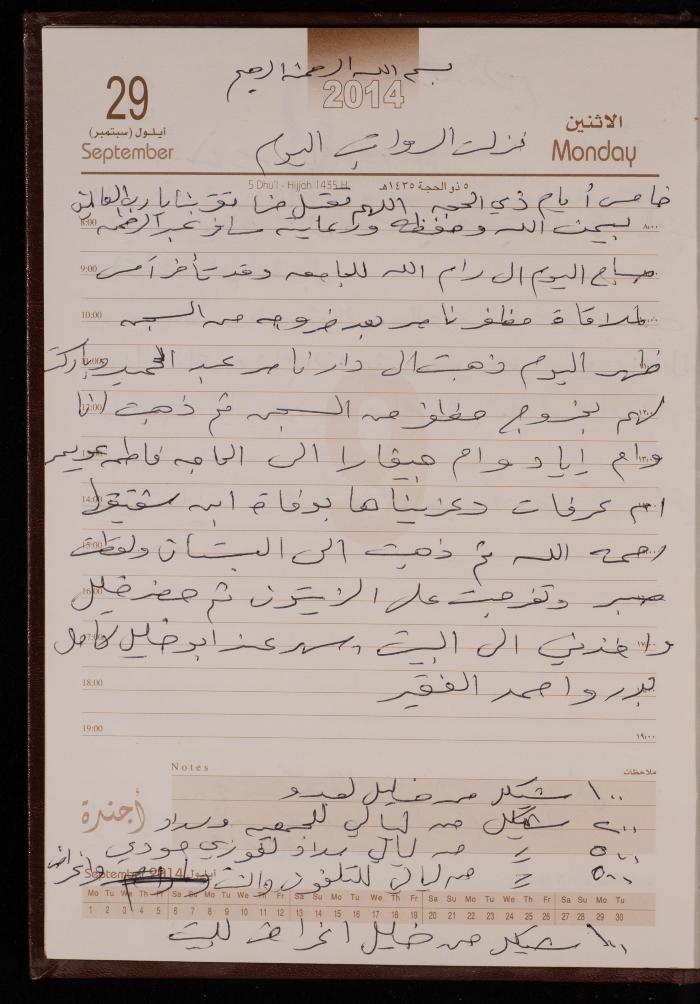 بسم الله الرحمن الرحيم
2014
29
أيلول (سبتمبر)
September
الاثنين
Monday
نزلت الرواتب اليوم
5 Dhu'l - Hijjah 1435 H ٥ ذو الحجة ١٤٣٥هـ
خامس أيام ذي الحجة اللهم تقبل منا يا رب العالمين
8:00 بيمن الله وحفظه ورعايته سافر عبد الرحمن ٨:٠٠
9:00 صباح اليوم الى رام الله للجامعه وقد تأخر أمس
10:00 لملاقاة مظفر ناصر بعد خروجه من السجن
ظهر اليوم ذهبت الى دار ناصر عبد الحميد وباركت
12:00 لهم بخروج مظفر من السجن ثم ذهبت انا ١٢:٠٠
وام إياد وام الى الحاجه فاطمه ١٣:٠٠
14:00 ام عرفات وعزيناها بوفاة ابن شقيقها
15:00 رحمه الله ثم ذهبت الى البستان ولقطت
16:00 صبر وتفرجت على الزيتون ثم حضر خليل
17:00 واخذني الى البيت وسهر عند ابو خليل كامل ١٧:٠٠
18:00 بدر واحمد الفقير
19:00 ١٩:٠٠
Notes ملاحظات
١٠٠ شيكل من خليل
أجندة
٢٠٠ شيكل من ليالي للجمعيه وسداد
٥٠٠ = من ليالي سداد لفوزي
٥٠٠ = من ليالي للتلفون
September 2014 أيلول
Mo Tu We Th Fr Sa Su Mo Tu We Th Fr Sa Su Mo Tu We Th Fr Sa Su Mo Tu We Th Fr Sa Su Mo Tu
1 2 3 4 5 6 7 8 9 10 11 12 13 14 15 16 17 18 19 20 21 22 23 24 25 26 27 28 29 30
١٠٠ شيكل من خليل اغراض للبيت